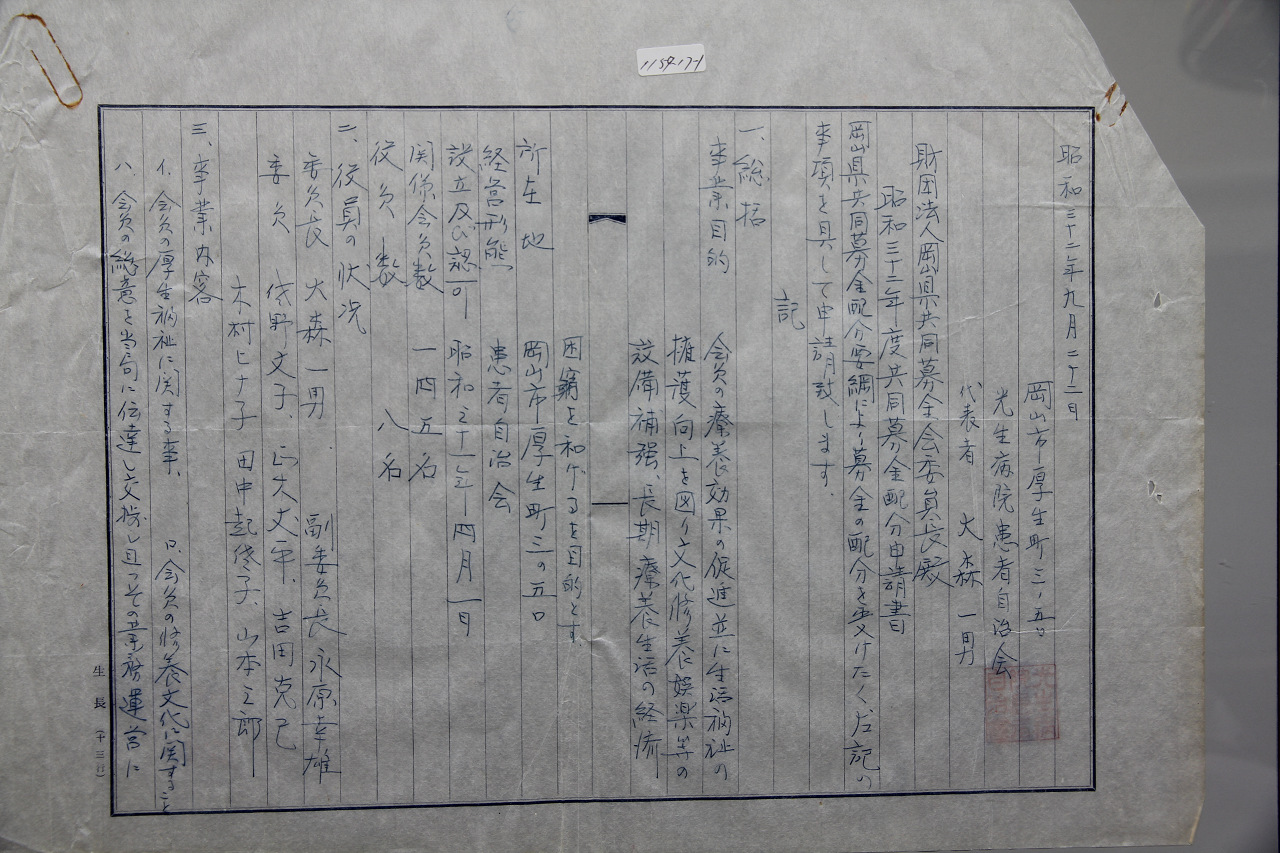 115417-1
昭和三十二年九月二十二日
岡山市厚生町三ノ五〇
光生病院患者自治会
代表者 大森一男
財団法人岡山県共同募金会委員長殿
昭和三十二年度共同募金配分申請書
岡山県共同募金配分要綱により募金の配分を受けたく左記の
事項を具して申請致します.
記
一、総括
事業目的 会員の療養効果の促進並に生活福祉の
擁護向上を図り文化修養娯楽等の
設備補強、長期療養生活の経済
困窮を和げるを目的とす.
所在地 岡山市厚生町三の五〇
経営形態 患者自治会
設立及び認可 昭和三十一年四月一日
関係会員数 一四五名
役員数 八名
二、役員の状況
委員長 大森一男. 副委員長 永原幸雄
委員 佐野文子、 吉田克己
木村ヒナ子 田中 山本三郎
三、事業内容
イ、会員の厚生福祉に関する事、 ロ、会員の修養文化に関すること
ハ、会員の総意を当局に伝達し交換し且つその業務運営に
生長(十三行)